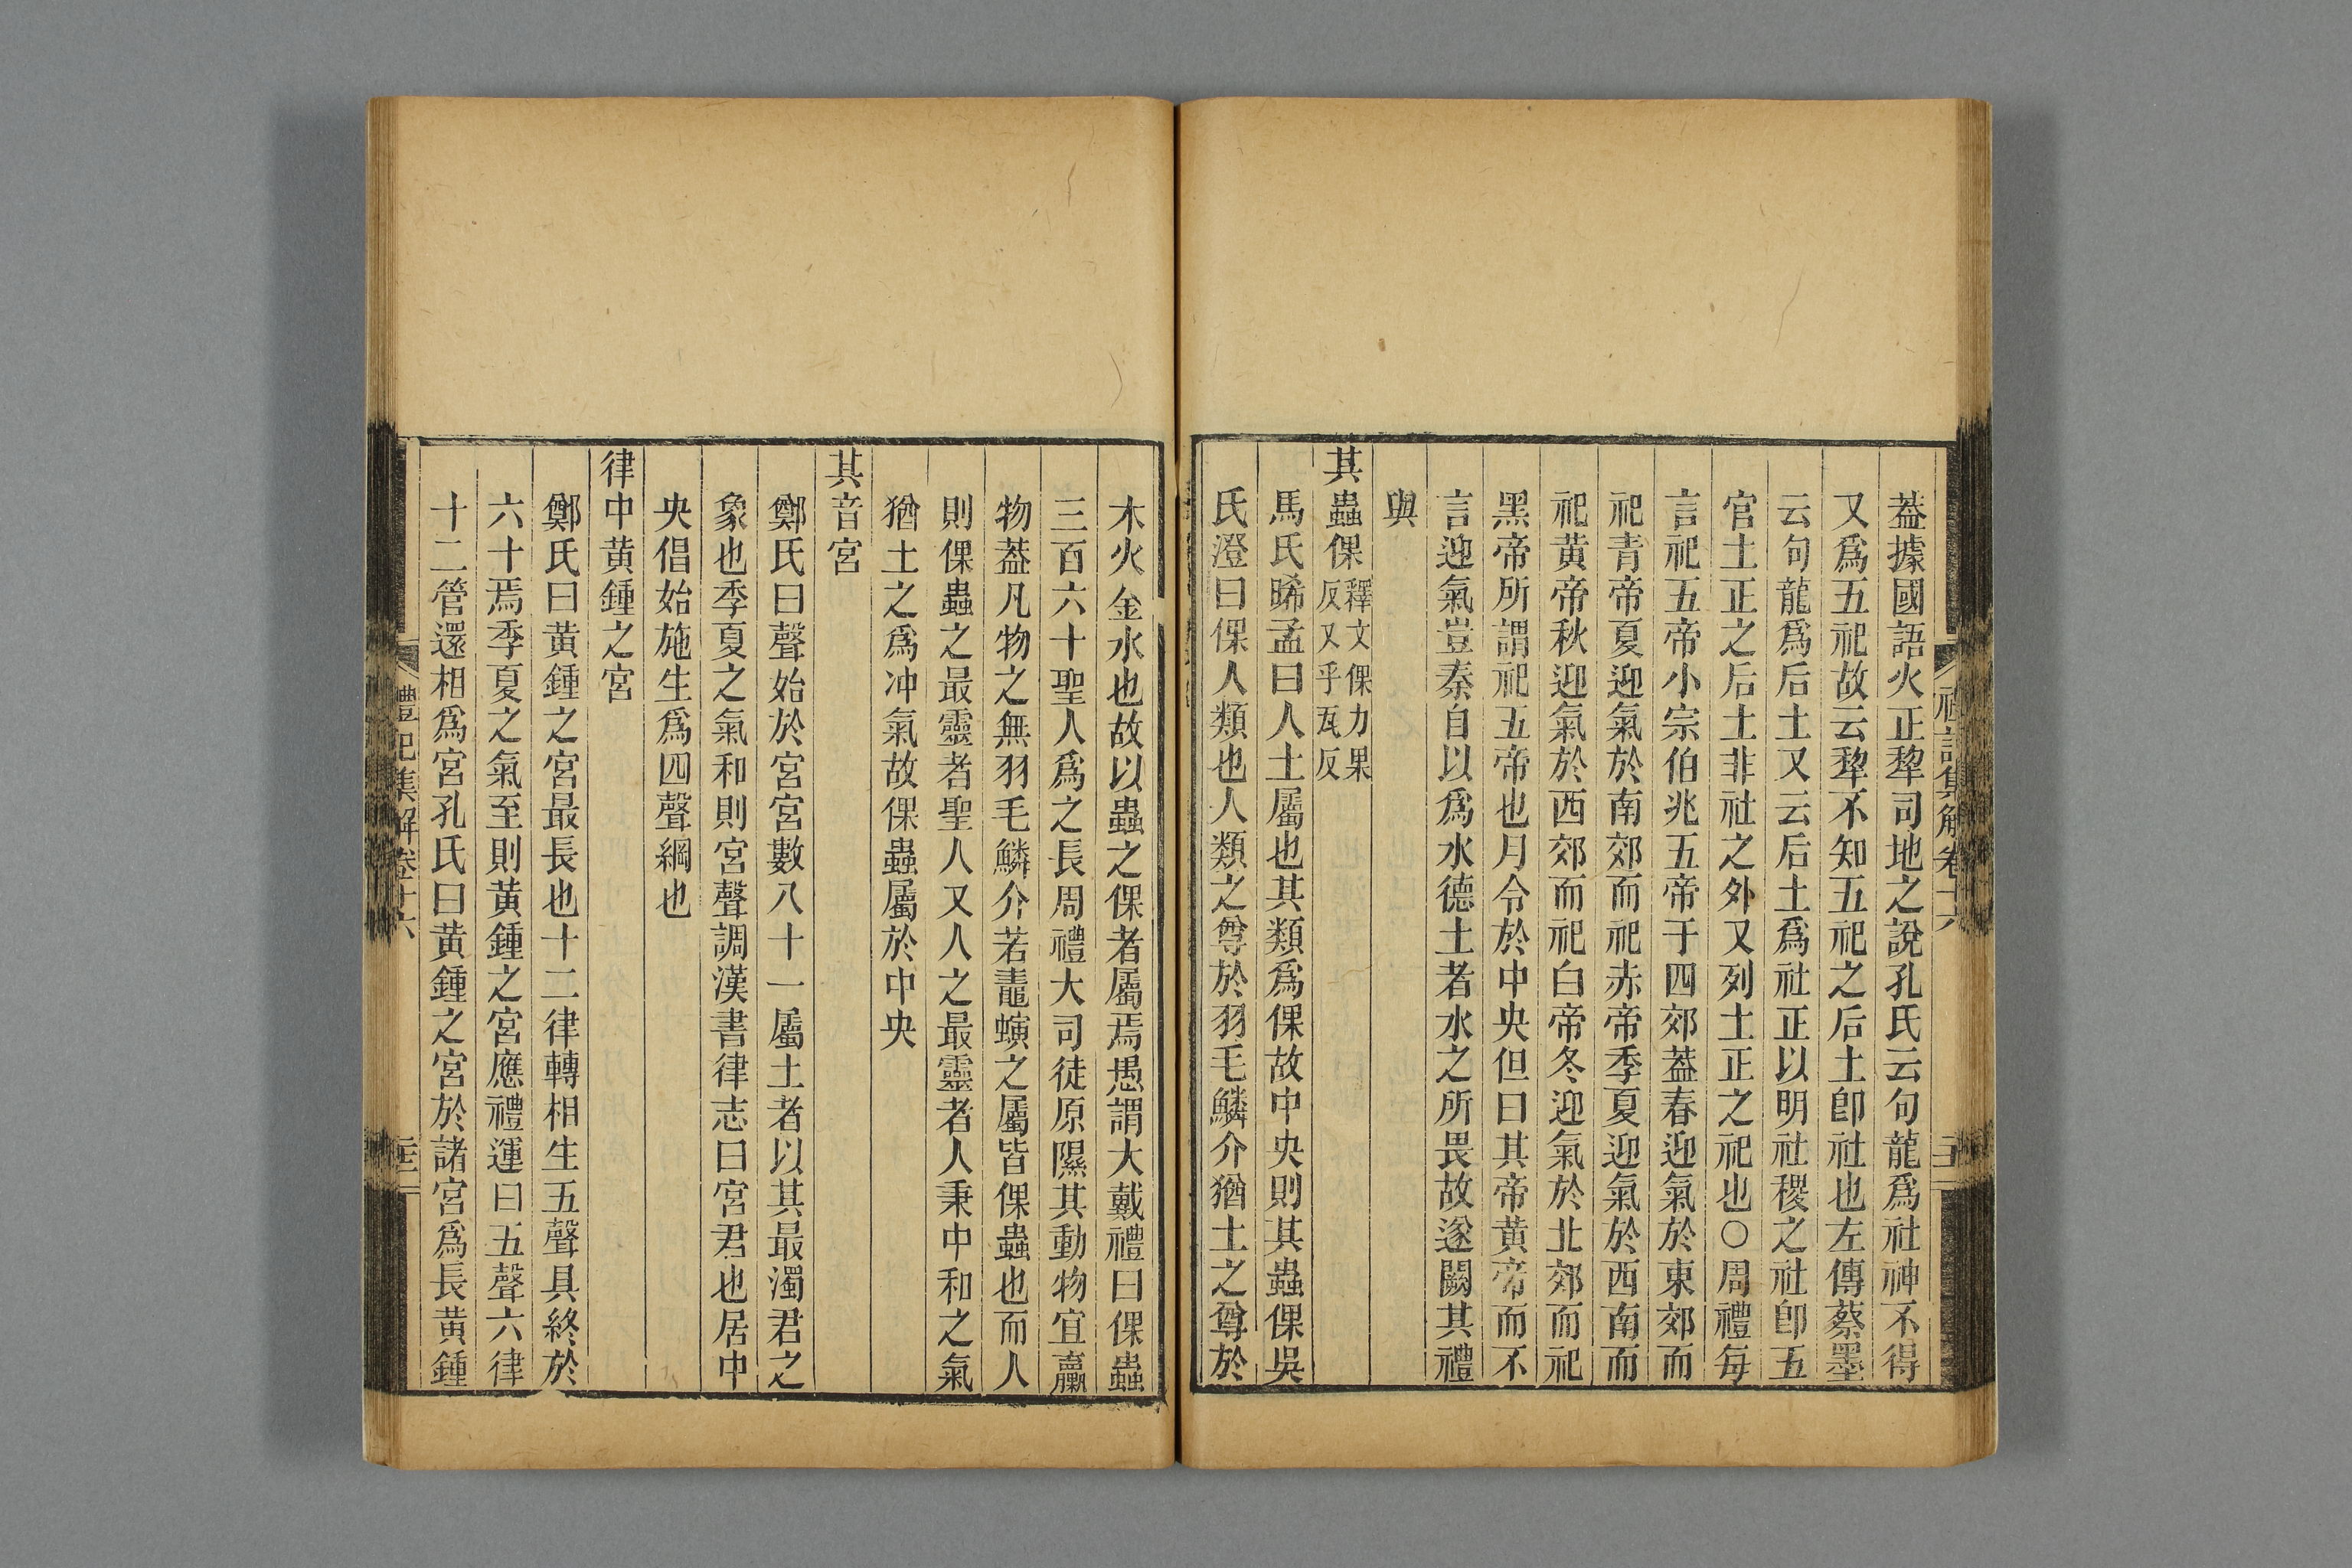 蓋據國語火正犂司地之說孔氏云句龍爲社神不得
又爲五祀故云犂不知五祀之后土卽社也左傳蔡墨
云句龍爲后土又云后土爲社正以明社稷之社卽五
官土正之后土非社之外又列土正之祀也○周禮每
言祀五帝小宗伯兆五帝于四郊蓋春迎氣於東郊而
祀青帝夏迎氣於南郊而祀赤帝季夏迎氣於西南而
祀黃帝秋迎氣於西郊而祀白帝冬迎氣於北郊而祀
黑帝所謂祀五帝也月令於中央但曰其帝黃帝而不
言迎氣豈秦自以爲水德土者水之所畏故遂闕其禮
與
其蟲倮釋文倮力果反又乎瓦反
馬氏晞孟曰人土屬也其類爲倮故中央則其蟲倮吳
氏澄曰倮人類也人類之尊於羽毛鱗介猶土之尊於
木火金水也故以蟲之倮者屬焉愚謂大戴禮曰倮蟲
三百六十聖人爲之長周禮大司徒原隰其動物宜臝
物蓋凡物之無羽毛鱗介若鼃螾之屬皆倮蟲也而人
則倮蟲之最靈者聖人又人之最靈者人秉中和之氣
猶土之爲冲氣故倮蟲屬於中央
其音宮
鄭氏曰聲始於宮宮數八十一屬土者以其最濁君之
象也季夏之氣和則宮聲調漢書律志曰宮君也居中
央倡始施生爲四聲綱也
律中黃鍾之宮
鄭氏曰黃鍾之宮最長也十二律轉相生五聲具終於
六十焉季夏之氣至則黃鍾之宮應禮運曰五聲六律
十二管還相爲宮孔氏曰黃鍾之宮於諸宮爲長黃鍾
禮記集解卷十六